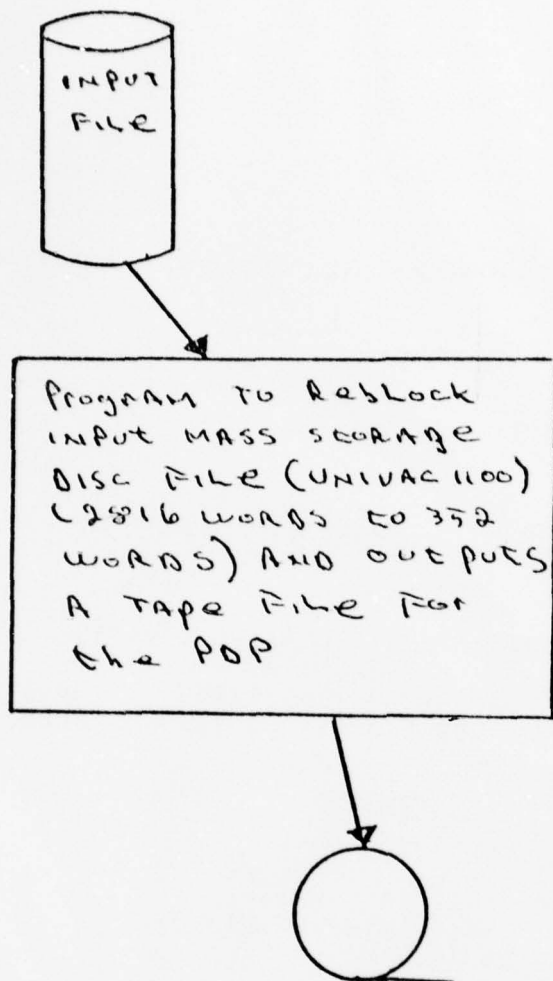 INPUT
FILE
Program to Reblock
INPUT MASS STORAGE
DISC FILE (UNIVAC 1100)
(2816 WORDS to 352
WORDS) AND OUTPUTS
A TAPE FILE FOR
the PDP